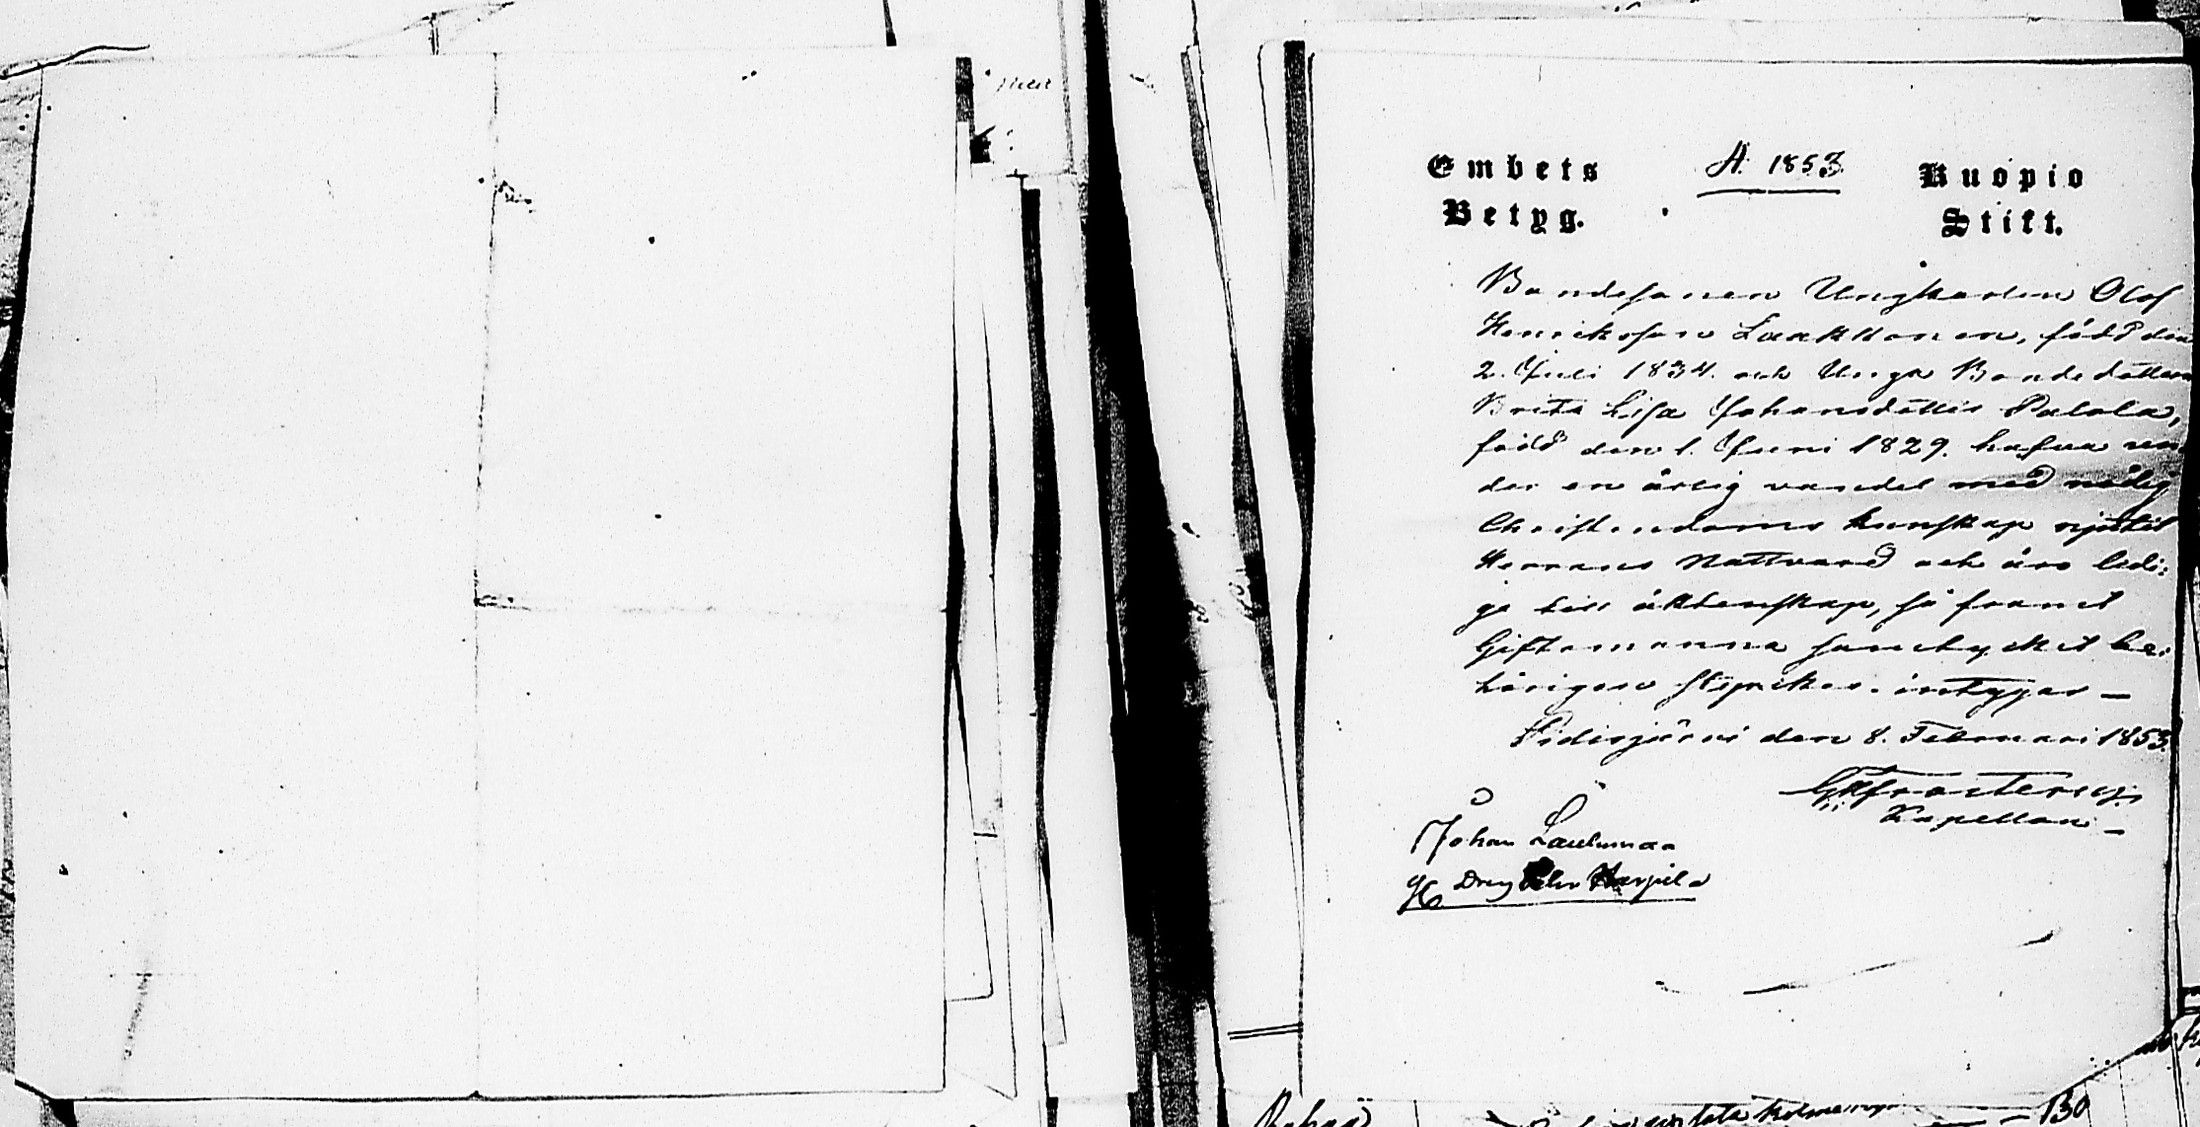 Embets
Betyg.
A. 1853.
Kuopio
Stift.
Bondesonen Ungkarlen Olof
Henriksson Laakkonen, född den
2. Juli 1834. och Unga Bondedottern
Brita Lisa Johansdotter Palola,
född den 1. Juni 1829. hafva un
der en ärlig vandel med nödig
Christendoms kunskap njutit
Herrans Nattvard och äro ledi:
ga till äktenskap, så framt
Giftomanna samtycket be:
hörigen styrckes. intygar —
Pidisjärvi den 8. Februari 1853.
Kapellan —
Johan
Dreng
130